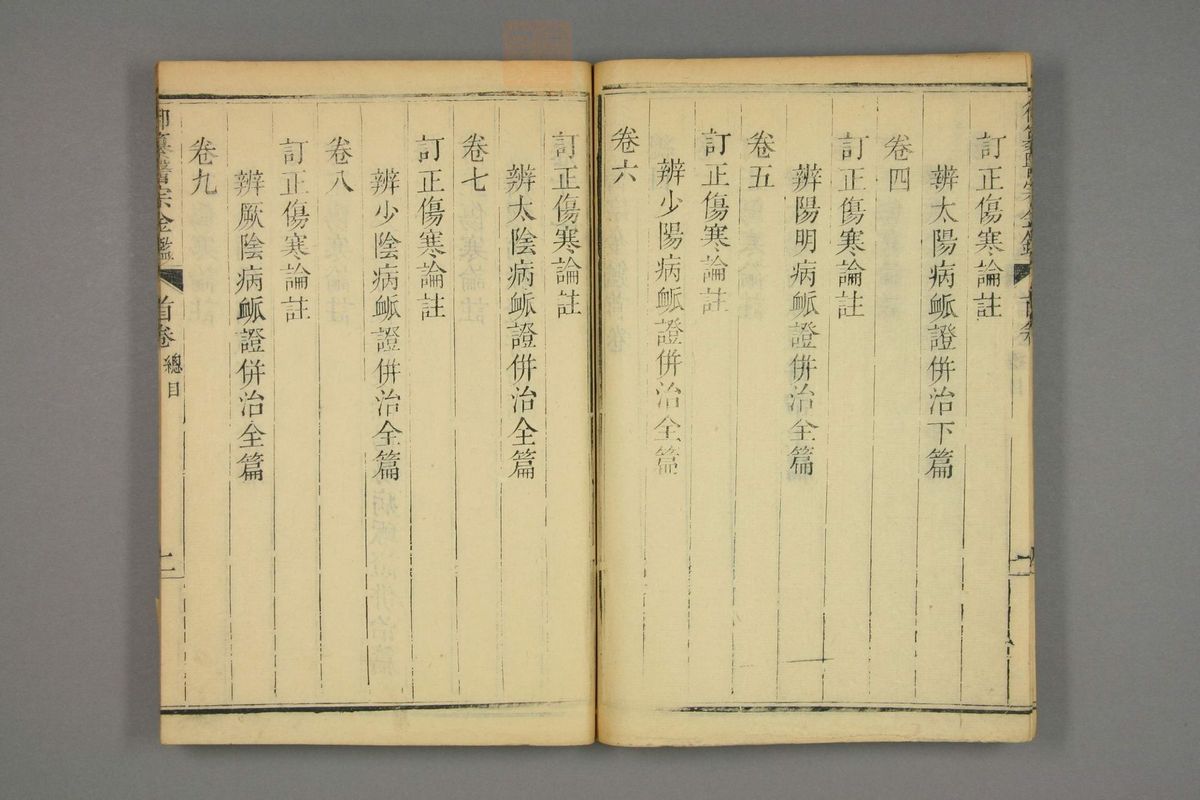 訂正傷寒論註
辨太陽病脈證併治下篇
卷四
訂正傷寒論註
辨陽明病脈證併治全篇
卷五
訂正傷寒論註
辨少陽病脈證併治全篇
卷六
訂正傷寒論註
辨太陰病脈證併治全篇
卷七
訂正傷寒論註
辨少陰病脈證併治全篇
卷八
訂正傷寒論註
辨厥陰病脈證併治全篇
卷九
御纂醫宗金鑑
首卷
總目
二